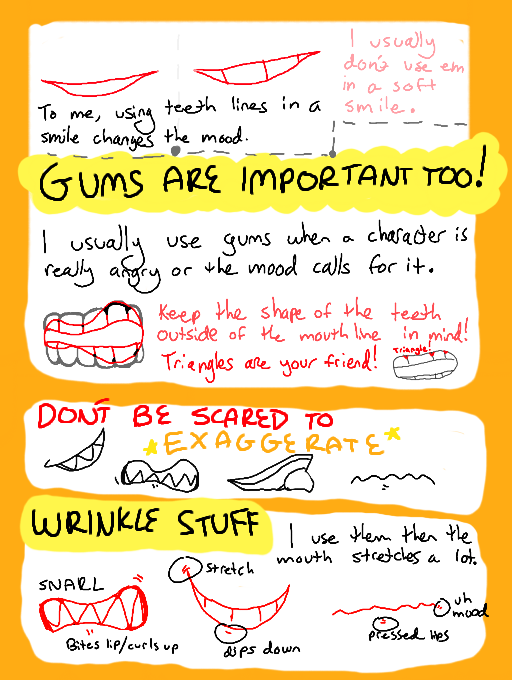 I usually
don't use em
in a soft
smile.
To me, using teeth lines in a
smile changes the mood.
GUMS ARE IMPORTANT TOO!
I usually use gums when a character is
really angry or the mood calls for it.
Keep the shape of the teeth
outside of the mouth line in mind!
Triangles are your friend!
Triangle!
DON'T BE SCARED TO
*EXAGGERATE*
WRINKLE STUFF
I use them then the
mouth stretches a lot.
SNARL
stretch
uh
mood
Bites lip/curls up
dips down
pressed lips